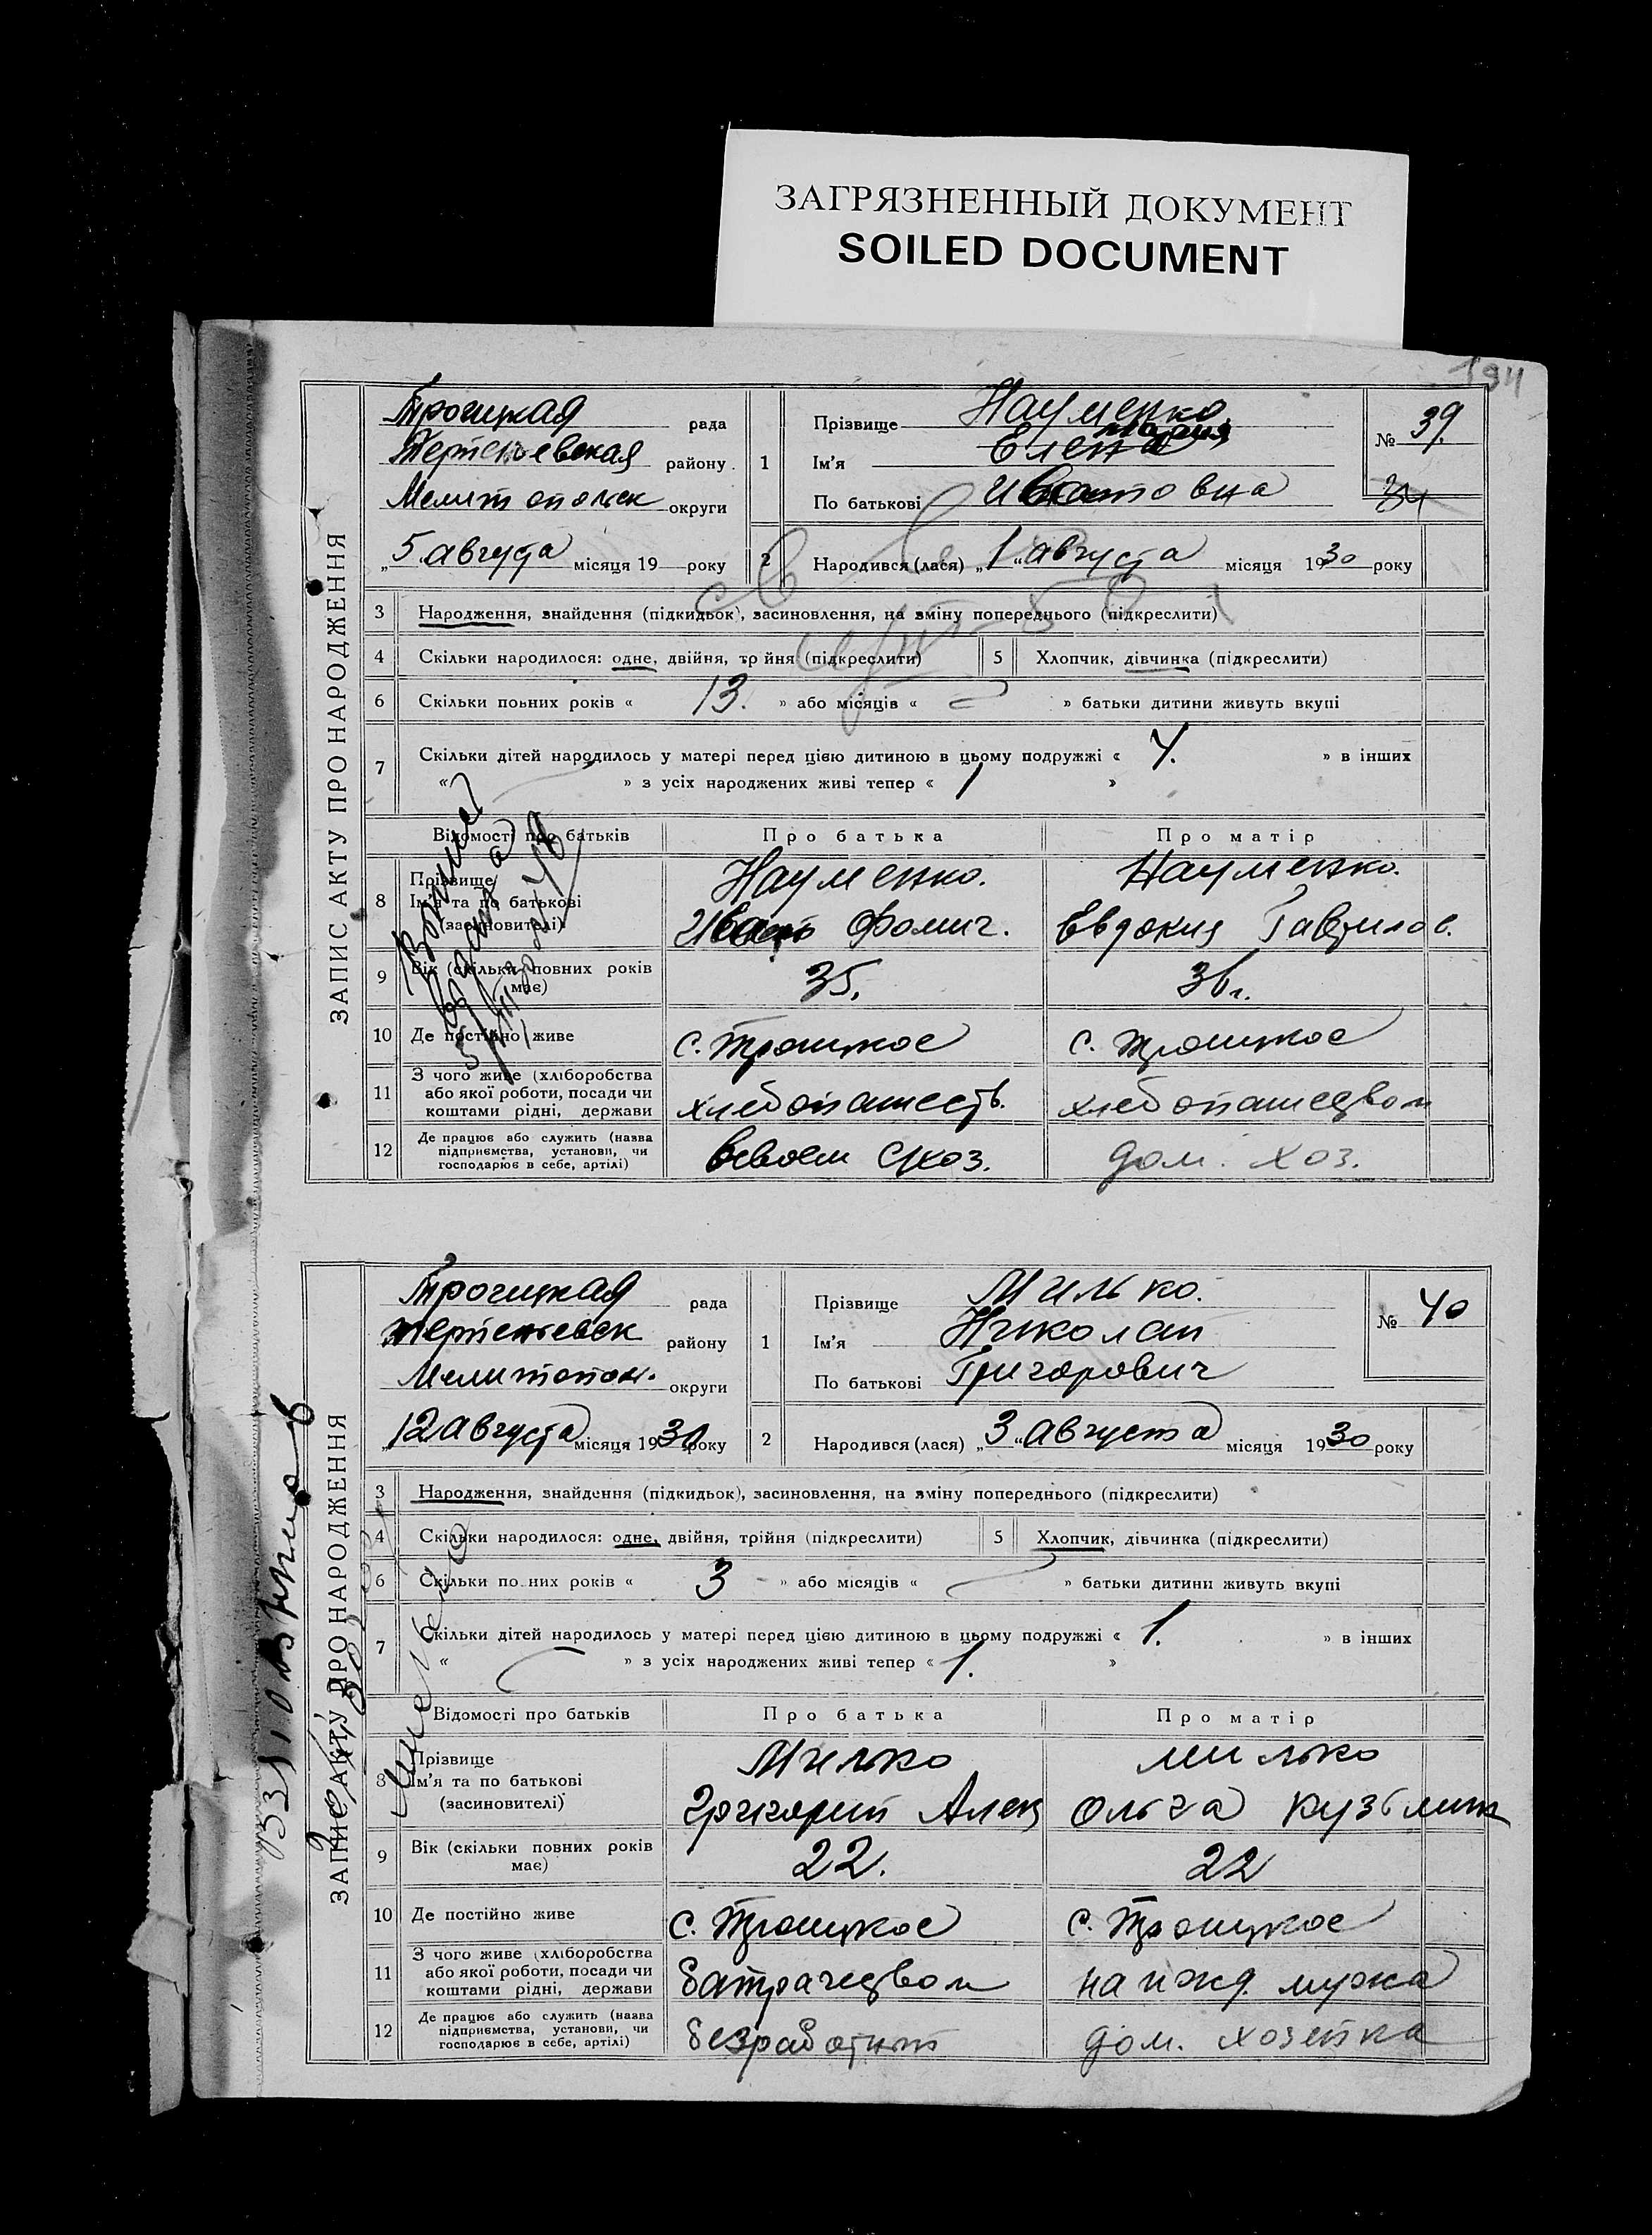 ЗАГРЯЗНЕННЫЙ ДОКУМЕНТ
SOILED DOCUMENT
194
ЗАПИС АКТУ ПРО НАРОДЖЕННЯ
Троицкая рада
району
Мелитопольск округи
„5 августа місяця 19 року
1
Прізвище Науменко
Ім'я Елена
По батькові Ивановна
№ 39.
34
2 Народився (лася) „1“ августа місяця 1930 року
3 Народження, знайдення (підкидьок), засиновлення, на зміну попереднього (підкреслити)
4 Скільки народилося: одне, двійня, трійня (підкреслити) 5 Хлопчик, дівчинка (підкреслити)
6 Скільки повних років « 13. » або місяців « » батьки дитини живуть вкупі
7 Скільки дітей народилось у матері перед цією дитиною в цьому подружжі « 4. » в інших
« » з усіх народжених живі тепер « 1 »
Відомості про батьків Про батька Про матір
8 Прізвище Науменко. Науменко.
Ім'я та по батькові Иван Фомич. Евдокия Гаврилов.
(засиновителі)
9 Вік (скільки повних років має) 35. 36 г.
10 Де постійно живе с. Троицкое с. Троицкое
11 З чого живе (хліборобства або якої роботи, посади чи коштами рідні, держави хлебопашеств. хлебопашеством
12 Де працює або служить (назва підприємства, установи, чи господарює в себе, артілі) всвоем схоз. дом. хоз.
ЗАПИС АКТУ ПРО НАРОДЖЕННЯ
Троицкая рада
району
Мелитопол. округи
„12 августа місяця 1930 року
1
Прізвище Милько.
Ім'я Николай
По батькові Григорович
№ 40
2 Народився (лася) „3“ августа місяця 1930 року
3 Народження, знайдення (підкидьок), засиновлення, на зміну попереднього (підкреслити)
4 Скільки народилося: одне, двійня, трійня (підкреслити) 5 Хлопчик, дівчинка (підкреслити)
6 Скільки повних років « 3 » або місяців « » батьки дитини живуть вкупі
7 Скільки дітей народилось у матері перед цією дитиною в цьому подружжі « 1. » в інших
« » з усіх народжених живі тепер « 1. »
Відомості про батьків Про батька Про матір
8 Прізвище Милько Милько
Ім'я та по батькові Григорий Алек Ольга Кузьмин
(засиновителі)
9 Вік (скільки повних років має) 22. 22
10 Де постійно живе с. Троицкое с. Троицкое
11 З чого живе (хліборобства або якої роботи, посади чи коштами рідні, держави батрачеством на ижд. мужа
12 Де працює або служить (назва підприємства, установи, чи господарює в себе, артілі) безработный дом. хозейка